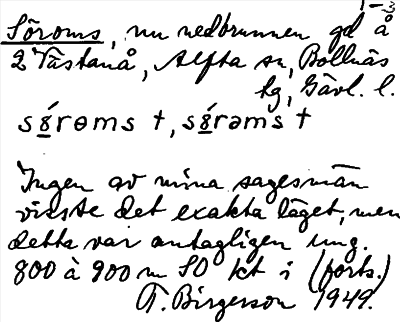 1-3
Söroms, nu nedbrunnen gd å
2 Västanå, Alfta sn, Bollnäs
tg, Gävl. l.
sǿ̱rɵms †, sǿ̱rəms †
Ingen av mina sagesmän
visste det exakta läget, men
detta var antagligen ung.
800 à 900 m SO kt i (forts.)
T. Birgerson 1949.